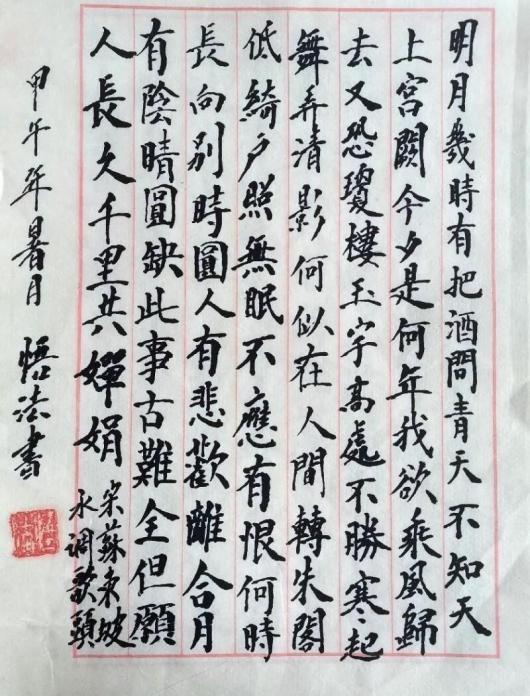 明月幾時有把酒問青天不知天
上宮闕今夕是何年我欲乘風歸
去又恐瓊樓玉宇高處不勝寒、起
舞弄清影何似在人間轉朱閣
低綺户照無眠不應有恨何時
長向别時圓人有悲歡離合月
有陰晴圓缺此事古難全但願
人長久千里共嬋娟
宋蘇東坡
水调歌頭
甲午年暑月 悟法書